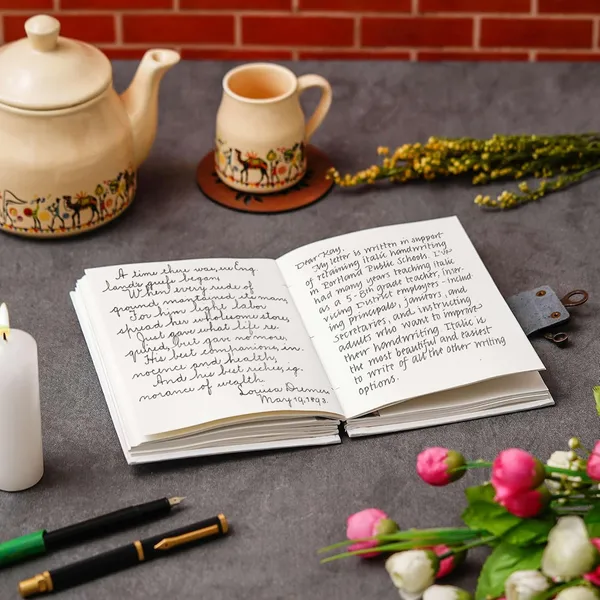 A time there was, ere Eng
lands griefs began,
When every rude of
ground maintained its man
For him light labor
spread her wholesome store
Just gave what life re
quired, but gave no more.
His best companions, in
nocence and health,
And his best riches, ig
norance of wealth.
Louisa Diemer
May 19, 1893.
Dear Kay,
My letter is written in support
of retaining italic handwriting
in Portland Public Schools. I've
had many years teaching italic
as a 5-6th grade teacher, inser-
vicing District employees - includ-
ing principals, janitors, and
secretaries, and instructing
adults who want to improve
their handwriting. Italic is
the most beautiful and easiest
to write of all the other writing
options.